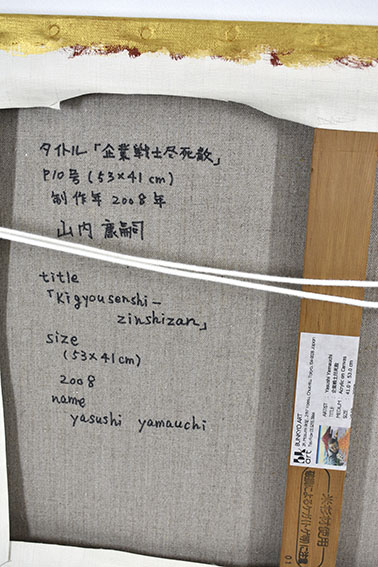 タイトル「企業戦士尽死散」
P10号(53×41cm)
制作年2008年
山内康嗣
title
「Kigyousenshi-
zinshizan」
size
(53×41cm)
2008
name
yasushi yamauchi
BUNKYO ART
art
ARTIST Yasushi Yamauchi
TITLE
MEDIUM Acrylic on Canvas
SIZE 41.0 x 53.0 cm
米杉材使用
01